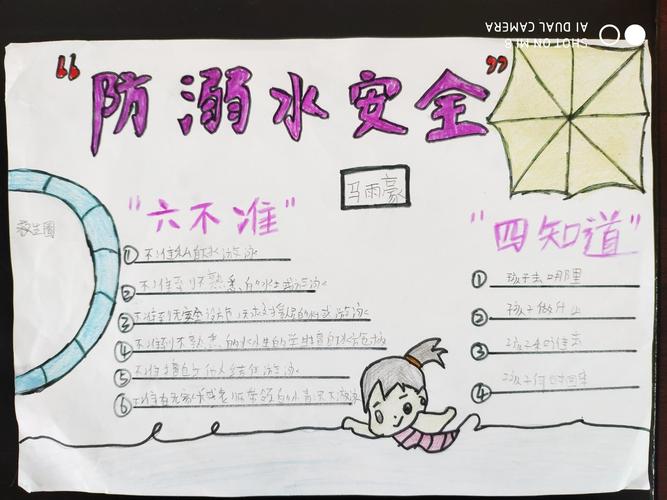 SHOT ON MI 8
AI DUAL CAMERA
“防溺水安全”
马雨豪
救生圈
“六不准”
①不准私自下水游泳
②不准到不熟悉的水域游泳
③不准到无安全设施、无救援人员的水域游泳
④不准到不熟悉的水
⑤不准擅自与他人结伴游泳
⑥不准在无家长或老师带领的
“四知道”
①孩子去哪里
②孩子做什么
③孩子和谁去
④孩子何时回来